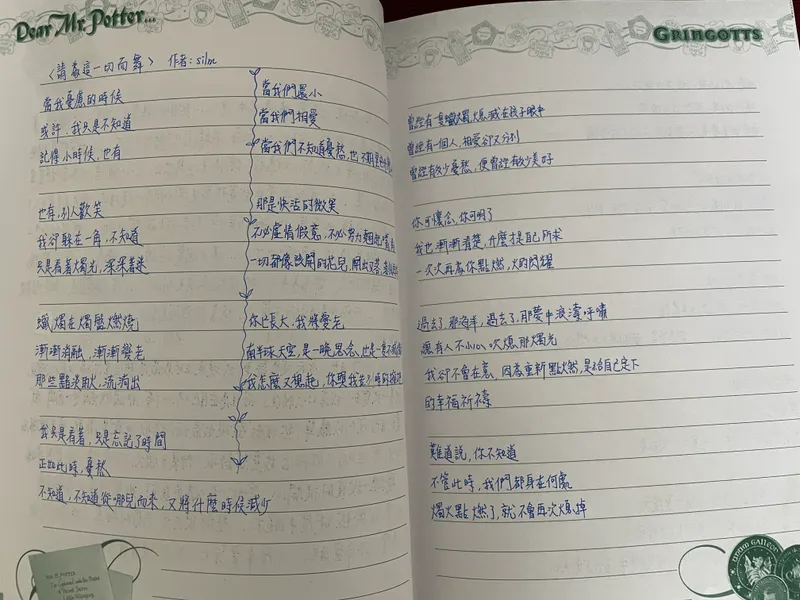 Dear Mr. Potter...
〈請為這一切而舞〉 作者:silve
當我憂慮的時候
或許,我只是不知道
記得小時候,也有
也有,別人歡笑
我卻躲在一角,不知道
只是看著燭光,深深著迷
蠟燭在燭盤燃燒
漸漸消融,漸漸變老
那些難淚欲,流淌出
我只是看著,只是忘記了時間
正如此時,憂愁
不知道,不知道從哪兒而來,又將什麼時候減少
當我們還小
當我們相愛
當我們不知道憂愁,也不
那是快活的微笑
不必虛情假意,不必努力翹起嘴角
一切都像盛開的花兒,開出又落
你已長大,我將變老
南半球天空,是一晚思念,也是一
我怎麼又想起,你與我
GRINGOTTS
曾經有一隻蠟燭,熄滅在孩子眼中
曾經有一個人,相愛卻又分別
曾經有多少憂愁,便曾經有多少美好
你可懷念,你可明了
我也漸漸清楚,什麼才是自己所求
一次次再為你點燃,火的閃耀
過去了,那海洋,過去了,那夢中浪濤呼嘯
總有人不小心吹熄那燭光
我卻不會在意,因為重新點燃,是給自己定下
的幸福祈禱
難道說,你不知道
不管此時,我們都身在何處
燭火點燃了,就不會再次熄掉